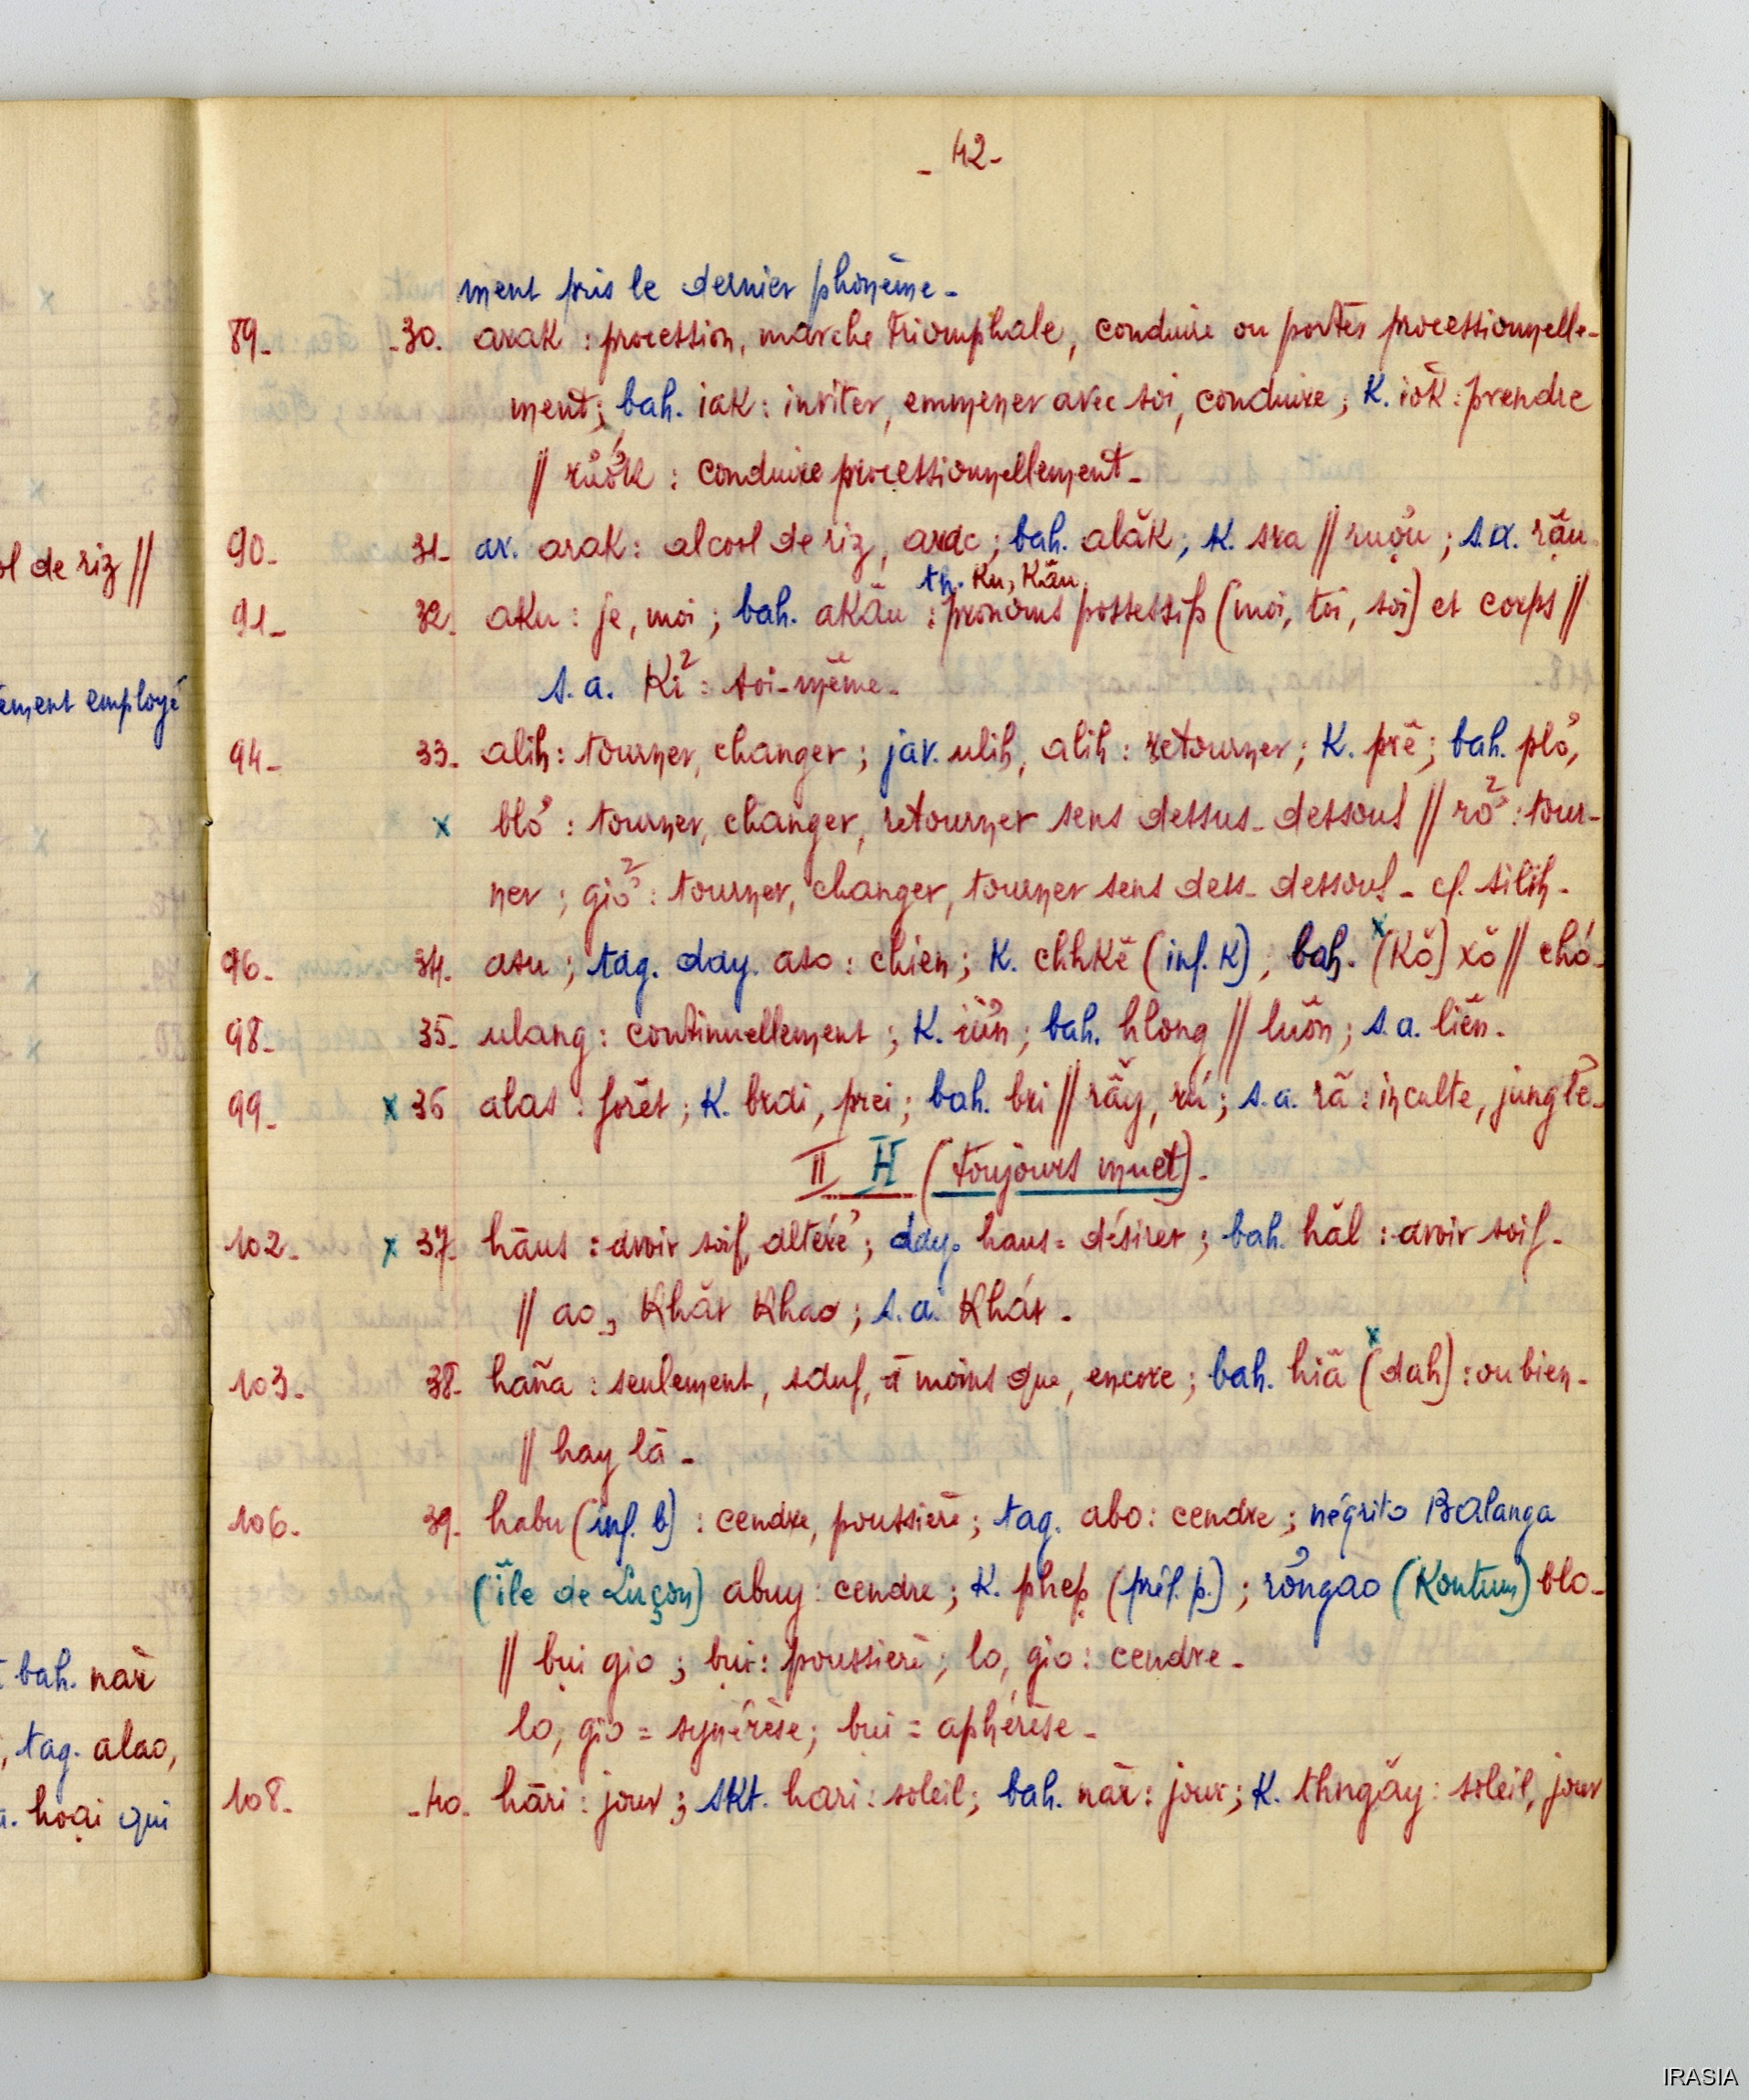 - 42 -
ment pris le dernier phonème -
89 - - 30. arak : procession, marche triomphale, conduire ou portés processionnelle-
ment ; bah. iak : inviter, emmener avec soi, conduire ; K. iŏk : prendre
// rước : conduire processionnellement -
90 - 31 - ar. arak : alcool de riz, arac ; bah. alăk ; K. sra // rượu ; s.a. rău
th. Ku, Kău
91 - 32. aku : je, moi ; bah. akău : pronoms possessifs (moi, toi, soi) et corps //
s. a. Kỉ : soi-même -
94 - 33 - alih : tourner, changer ; jav. ulih, alih : retourner ; K. prĕ ; bah. plơ,
x blơ : tourner, changer, retourner sens dessus-dessous // rở : tour-
ner ; giở : tourner, changer, tourner sens dess-dessous - cf. silih -
96 - 34. asu ; tag. day. aso : chien ; K. chhkĕ (inf. K) ; bah. x (Kŏ) xŏ // chó -
98 - 35 - ulang : continuellement ; K. iŭn ; bah. hlong // luôn ; s.a. liên -
99 - x 36 alas : forêt ; K. brdi, prei ; bah. bri // rãy, rú ; s.a. rã : inculte, jungle -
II H (toujours muet) -
102 - x 37 - hāus : avoir soif, altéré ; day. haus = désirer ; bah. hăl : avoir soif -
// ao, Khát Khao ; s.a. Khát -
103 - 38 - haña : seulement, sauf, à moins que, encore ; bah. hiă x (dah) : ou bien -
// hay là -
106 - 39 - habu (inf. b) : cendre, poussière ; tag. abo : cendre ; négrito Balanga
(île de Luçon) abuy : cendre ; K. phep (préf. p.) ; rơngao (Kontum) blo -
// bụi gio ; bụi : poussière ; lo, gio : cendre -
lo, gio = synérèse ; bụi = aphérèse -
108 - - 40 - hāri : jour ; skt. hari : soleil ; bah. năr : jour ; K. thngăy : soleil, jour
ol de riz //
ement employé
bah. năr
, tag. alao,
a. hoại qui
IRASIA